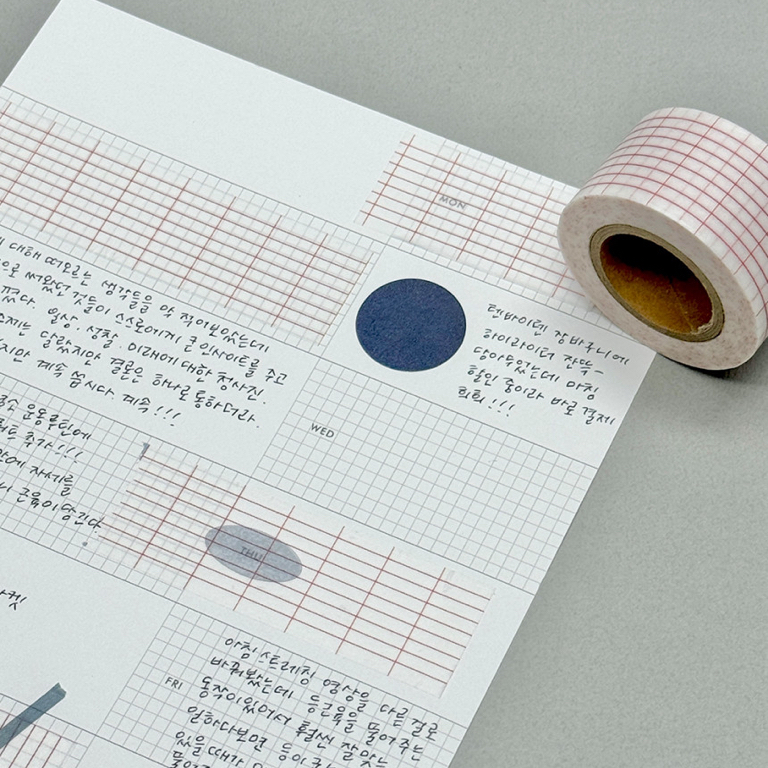 MON
대해 떠오르는 생각들을 막 적어보았는데
으로 써왔던 것들이 스스로에게 큰 인사이트를 주고
일상. 성찰. 미래에 대한 청사진.
달랐지만 결론은 하나로 통하더라.
지만 계속 씁시다 계속!!!
텐바이텐 장바구니에
하이라이터 잔뜩~
담아두었는데 마침
할인 중이라 바로 결제
희희!!!
WED
운동루틴에
추가!!!
자세를
근육이 당긴다
THU
FRI
아침 스트레칭 영상을 다른 걸로
바꿔봤는데 등근육을 풀어주는
동작이 있어서 훨씬 잘 맞는
일하다보면 등이
있을 때가